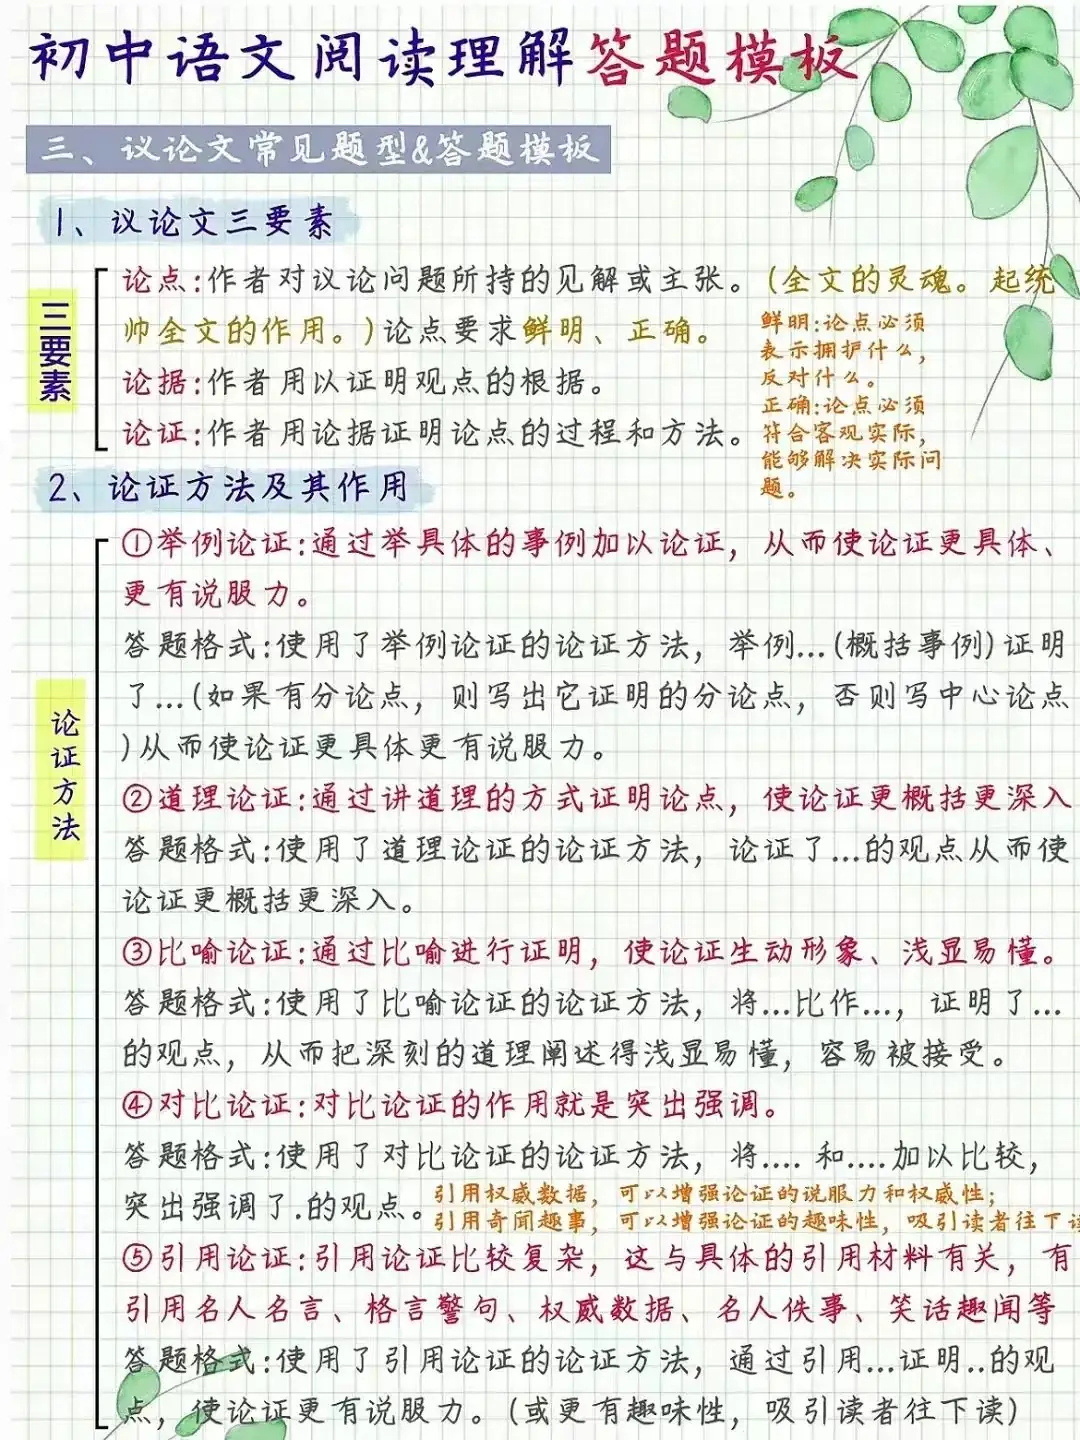 初中语文阅读理解答题模板
三、议论文常见题型&答题模板
1、议论文三要素
三要素
论点:作者对议论问题所持的见解或主张。(全文的灵魂。起统
帅全文的作用。)论点要求鲜明、正确。
鲜明:论点必须
表示拥护什么,
反对什么。
正确:论点必须
符合客观实际,
能够解决实际问
题。
论据:作者用以证明观点的根据。
论证:作者用论据证明论点的过程和方法。
2、论证方法及其作用
论证方法
①举例论证:通过举具体的事例加以论证，从而使论证更具体、
更有说服力。
答题格式:使用了举例论证的论证方法，举例...(概括事例)证明
了...(如果有分论点，则写出它证明的分论点，否则写中心论点
)从而使论证更具体更有说服力。
②道理论证:通过讲道理的方式证明论点，使论证更概括更深入
答题格式:使用了道理论证的论证方法，论证了...的观点从而使
论证更概括更深入。
③比喻论证:通过比喻进行证明，使论证生动形象、浅显易懂。
答题格式:使用了比喻论证的论证方法，将...比作...，证明了...
的观点，从而把深刻的道理阐述得浅显易懂，容易被接受。
④对比论证:对比论证的作用就是突出强调。
答题格式:使用了对比论证的论证方法，将.... 和....加以比较，
突出强调了.的观点。
引用权威数据，可以增强论证的说服力和权威性；
引用奇闻趣事，可以增强论证的趣味性，吸引读者往下读
⑤引用论证:引用论证比较复杂，这与具体的引用材料有关，有
引用名人名言、格言警句、权威数据、名人佚事、笑话趣闻等
答题格式:使用了引用论证的论证方法，通过引用...证明..的观
点，使论证更有说服力。(或更有趣味性，吸引读者往下读)